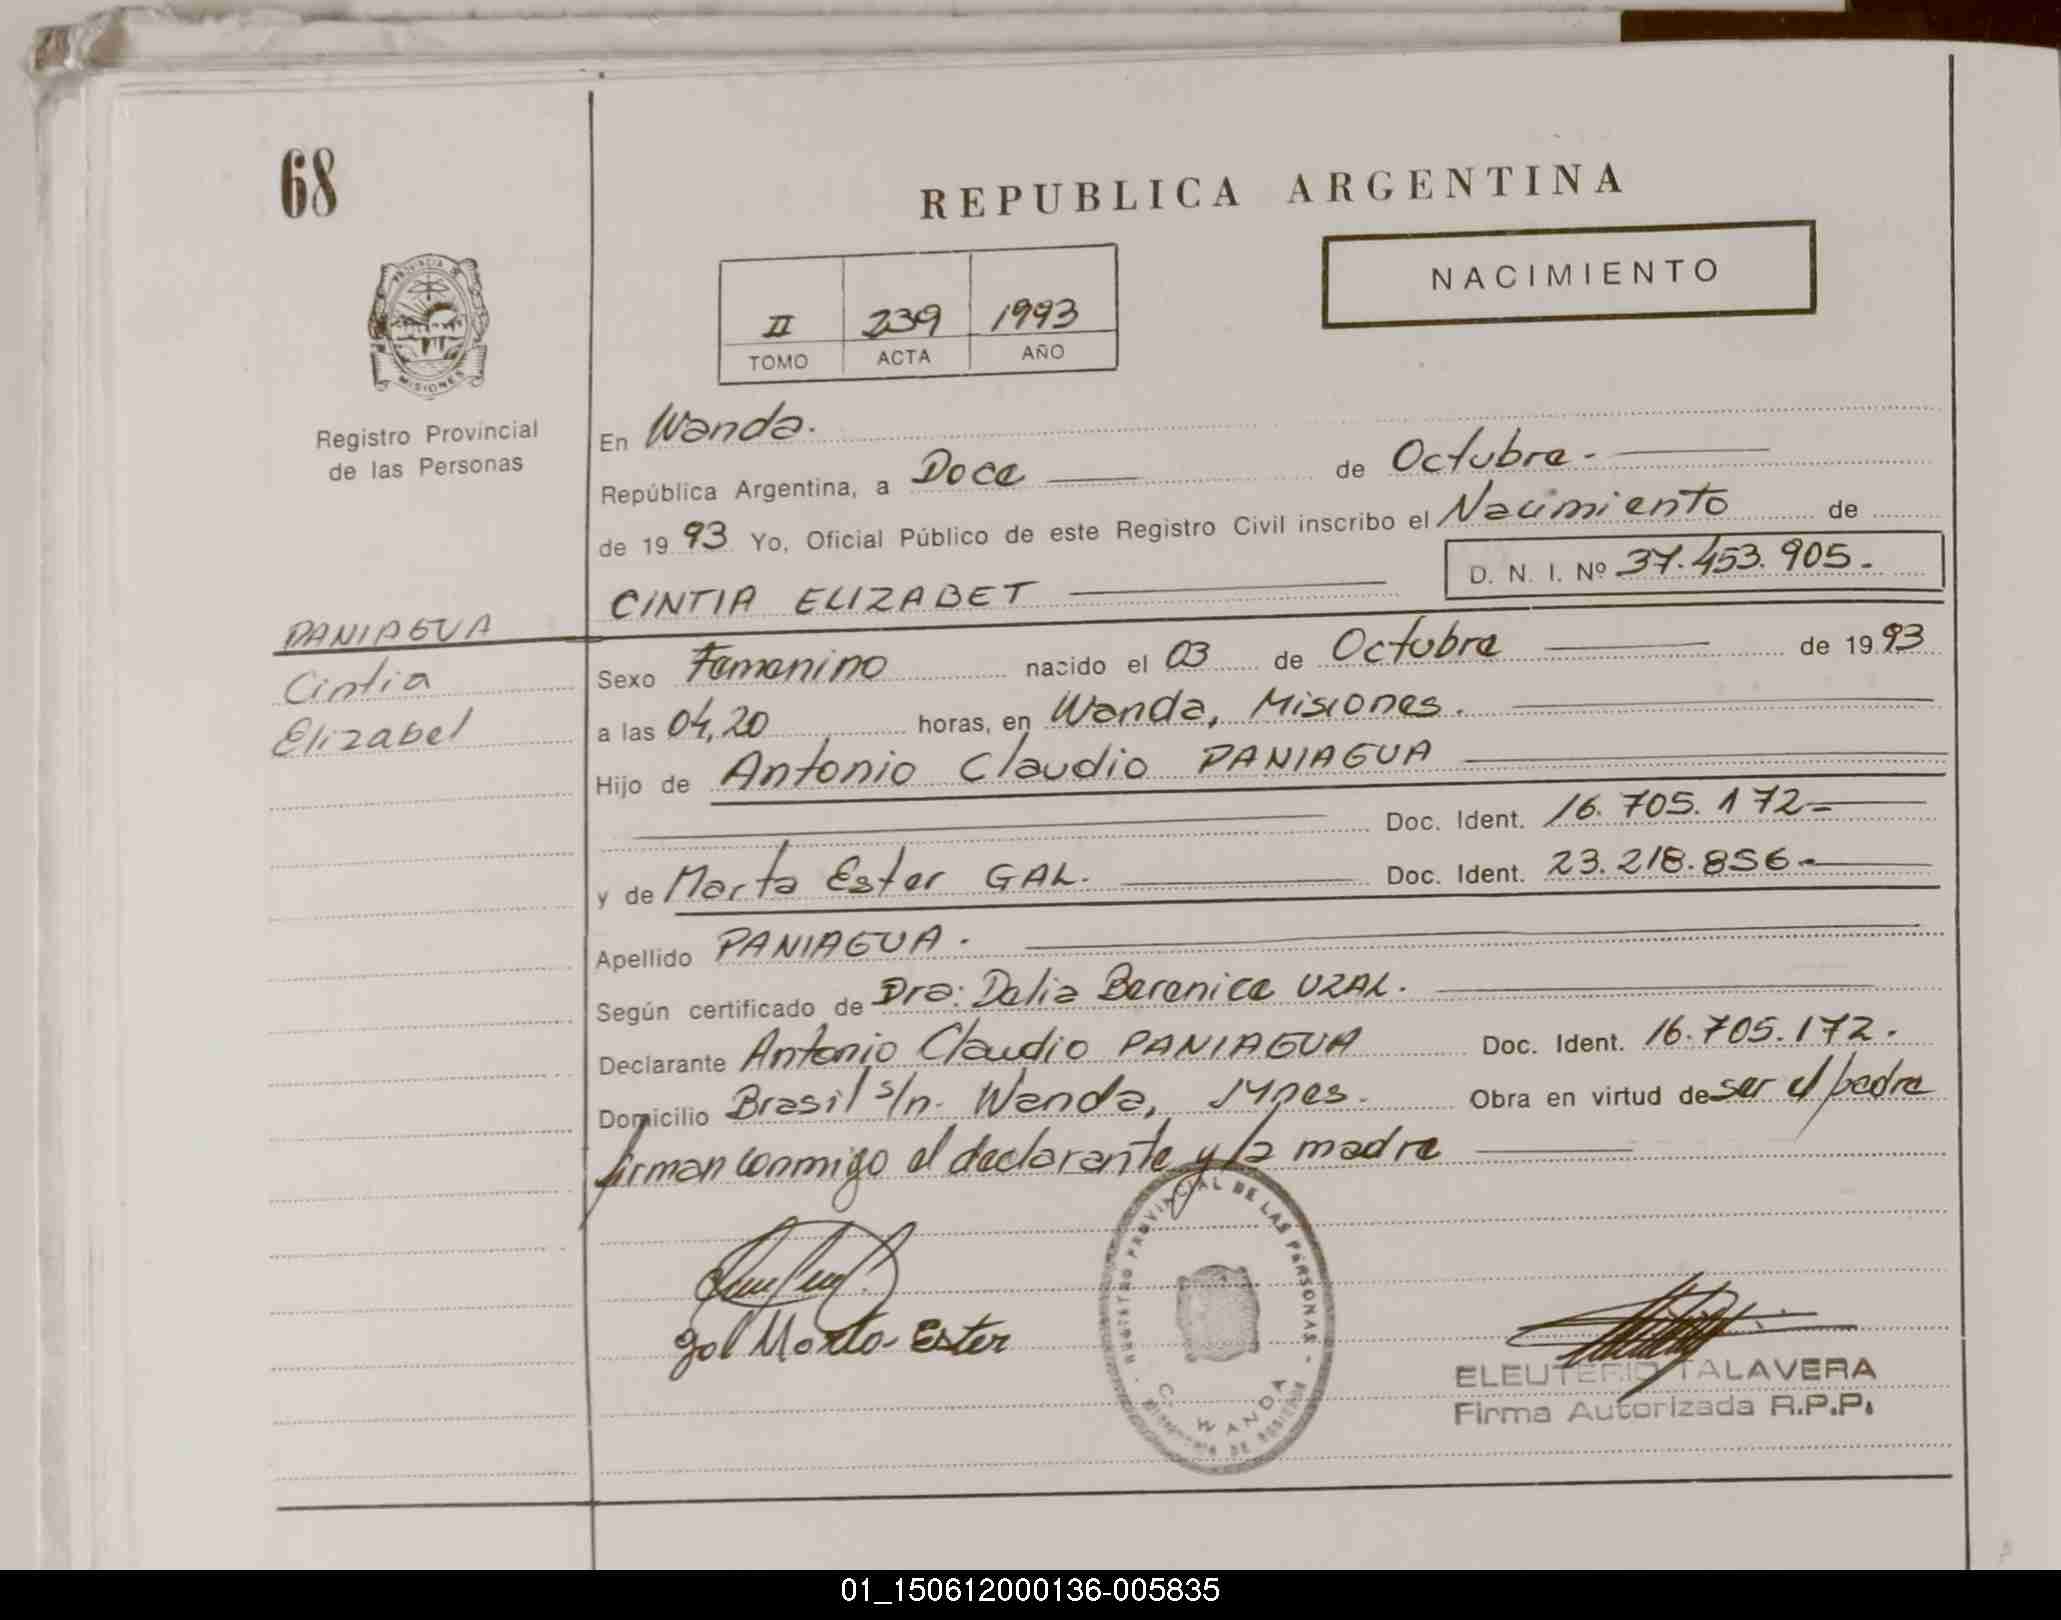 68
REPUBLICA ARGENTINA
NACIMIENTO
PROVINCIA DE
MISIONES
II 239 1993
TOMO ACTA AÑO
Registro Provincial
de las Personas
En Wanda.
República Argentina, a Doce de Octubre.
de 1993 Yo, Oficial Público de este Registro Civil inscribo el Nacimiento de
D. N. I. Nº 37.453.905.
CINTIA ELIZABET
PANIAGUA
Cintia
Elizabel
Sexo Femenino nacido el 03 de Octubre de 1993
a las 04,20 horas, en Wanda, Misiones.
Hijo de Antonio Claudio PANIAGUA
Doc. Ident. 16.705.172
y de Marta Ester GAL. Doc. Ident. 23.218.856.
Apellido PANIAGUA.
Según certificado de Dra: Delia Berenice UZAL.
Declarante Antonio Claudio PANIAGUA Doc. Ident. 16.705.172.
Domicilio Brasil s/n. Wanda, Mnes. Obra en virtud de ser el padre
firman conmigo el declarante y la madre
REGISTRO PROVINCIAL DE LAS PERSONAS
WANDA
gal Marta Ester
ELEUTERIO TALAVERA
Firma Autorizada R.P.P.
01_150612000136-005835